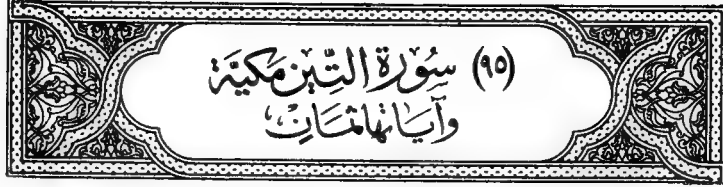 (٩٥) سُورَة التِّين مَكيَّة
وَآيَاتهَا ثَمَانٍ